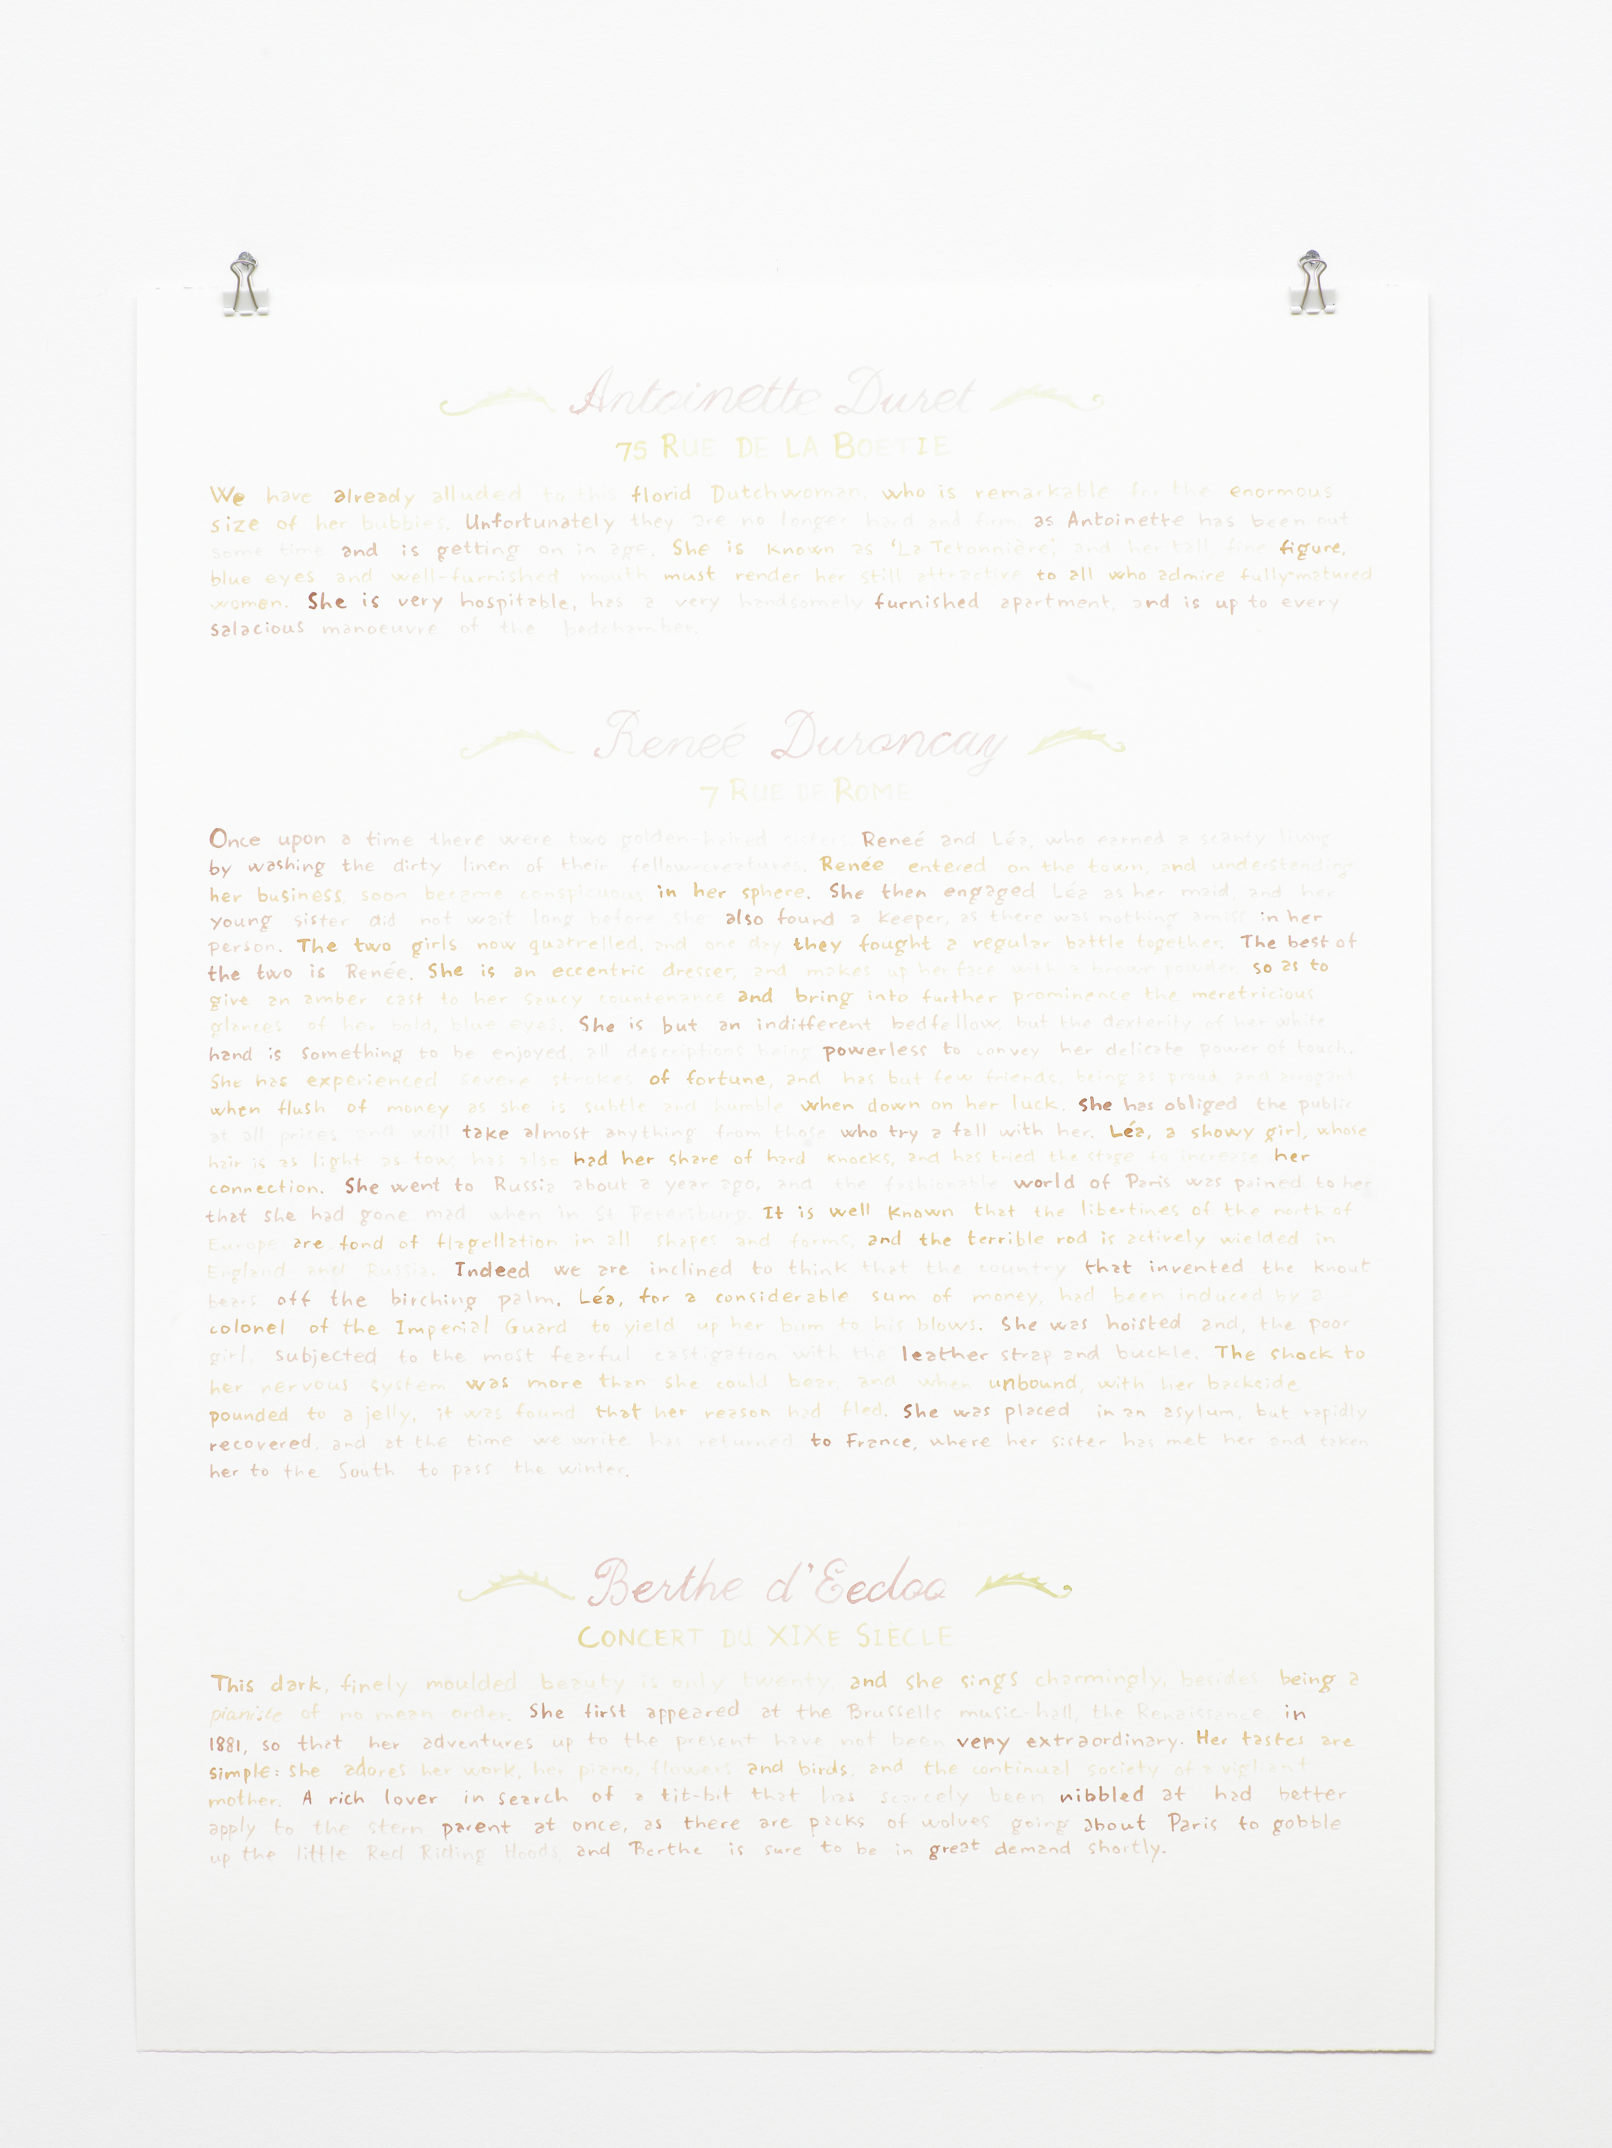 Antoinette Duret
75 RUE DE LA BOETIE
We have already alluded to this florid Dutchwoman, who is remarkable for the enormous
size of her bubbies. Unfortunately they are no longer hard and firm, as Antoinette has been out
some time and is getting on in age. She is known as 'La Tetonnière', and her tall fine figure,
blue eyes and well-furnished mouth must render her still attractive to all who admire fully-matured
women. She is very hospitable, has a very handsomely furnished apartment, and is up to every
salacious manoeuvre of the bedchamber.
Reneé Duroncay
7 RUE DE ROME
Once upon a time there were two golden-haired sisters, Reneé and Léa, who earned a scanty living
by washing the dirty linen of their fellow-creatures. Renée entered on the town, and understanding
her business, soon became conspicuous in her sphere. She then engaged Léa as her maid, and her
young sister did not wait long before she also found a keeper, as there was nothing amiss in her
person. The two girls now quatrelled, and one day they fought a regular battle together. The best of
the two is Renée. She is an eccentric dresser, and makes up her face with a brown powder, so as to
give an amber cast to her saucy countenance and bring into further prominence the meretricious
glances of her bold, blue eyes. She is but an indifferent bedfellow, but the dexterity of her white
hand is something to be enjoyed, all descriptions being powerless to convey her delicate power of touch.
She has experienced severe strokes of fortune, and has but few friends, being as proud and arrogant
when flush of money as she is subtle and humble when down on her luck. She has obliged the public
at all prices and will take almost anything from those who try a fall with her. Léa, a showy girl, whose
hair is as light as tow, has also had her share of hard knocks, and has tried the stage to increase her
connection. She went to Russia about a year ago, and the fashionable world of Paris was pained to her
that she had gone mad when in St Petersburg. It is well known that the libertines of the north of
Europe are fond of flagellation in all shapes and forms, and the terrible rod is actively wielded in
England and Russia. Indeed we are inclined to think that the country that invented the knout
bears off the birching palm. Léa, for a considerable sum of money, had been induced by a
colonel of the Imperial Guard to yield up her bum to his blows. She was hoisted and, the poor
girl, subjected to the most fearful castigation with the leather strap and buckle. The shock to
her nervous system was more than she could bear, and when unbound, with her backside
pounded to a jelly, it was found that her reason had fled. She was placed in an asylum, but rapidly
recovered, and at the time we write has returned to France, where her sister has met her and taken
her to the South to pass the winter.
Berthe d'Eedoo
CONCERT DU XIXE SIÈCLE
This dark, finely moulded beauty is only twenty, and she sings charmingly, besides being a
pianiste of no mean order. She first appeared at the Brussells music-hall, the Renaissance, in
1881, so that her adventures up to the present have not been very extraordinary. Her tastes are
simple: she adores her work, her piano, flowers and birds, and the continual society of a vigilant
mother. A rich lover in search of a tit-bit that has scarcely been nibbled at had better
apply to the stern parent at once, as there are packs of wolves going about Paris to gobble
up the little Red Riding Hoods, and Berthe is sure to be in great demand shortly.